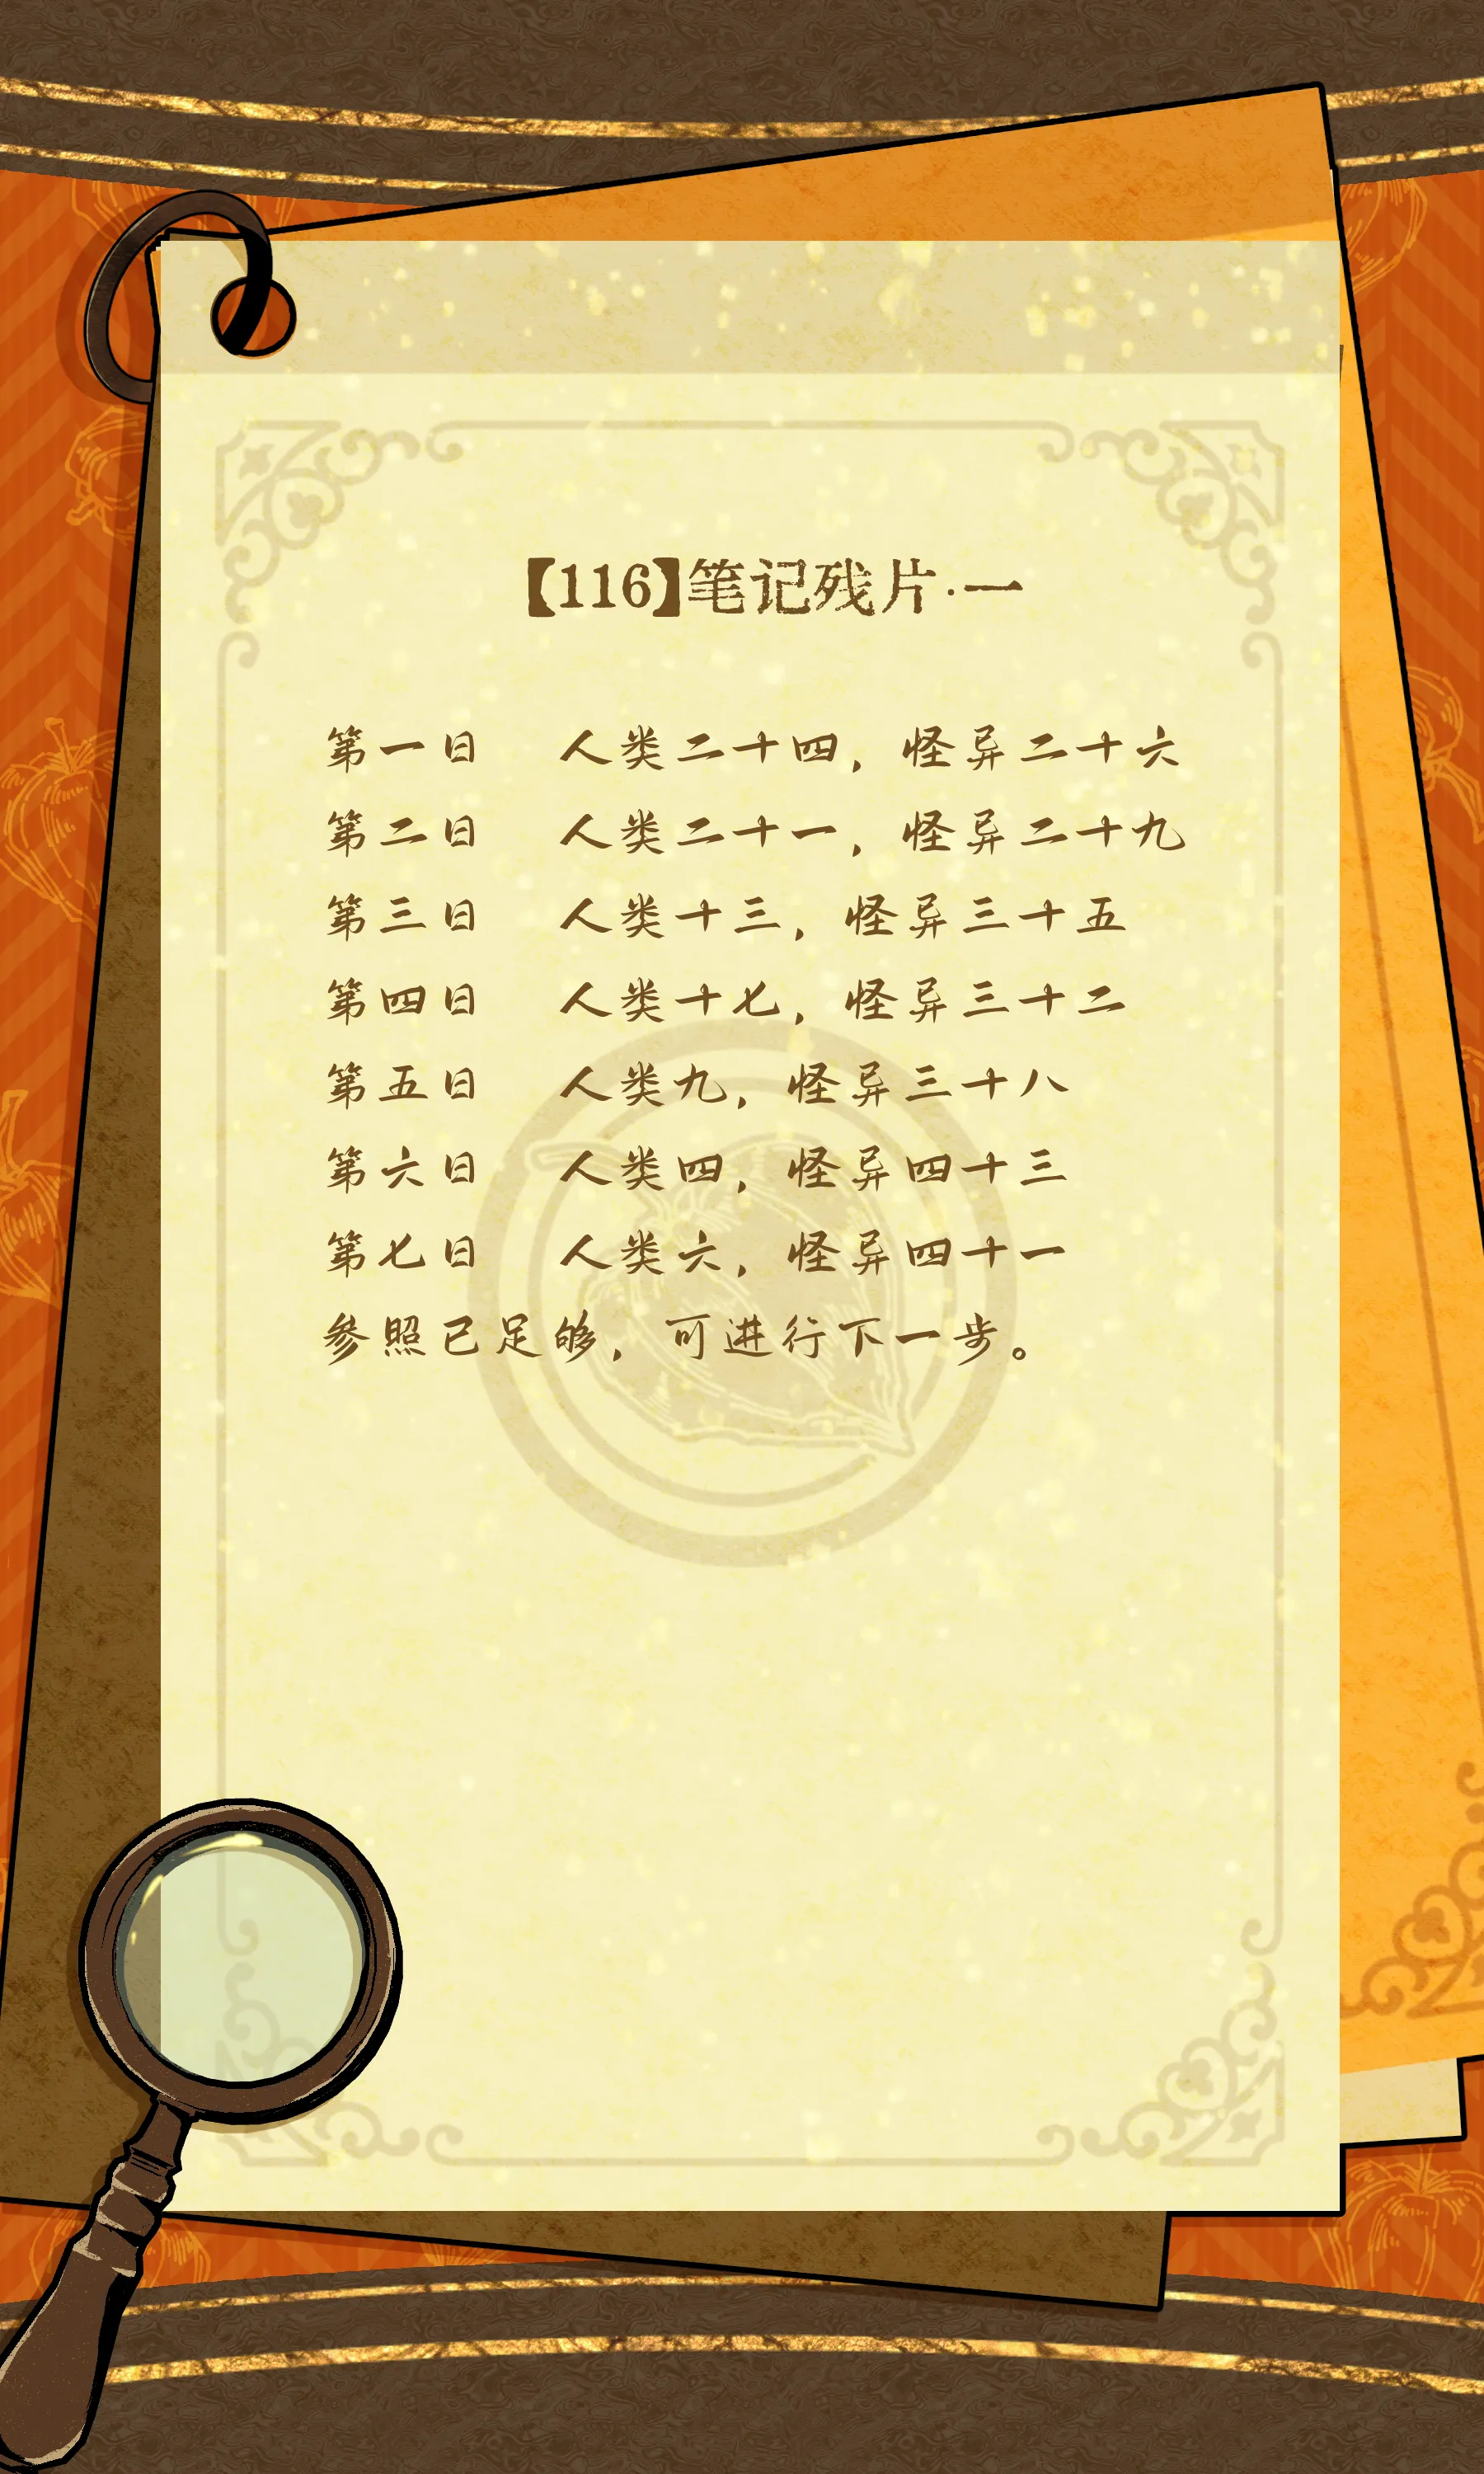 【116】笔记残片·一
第一日 人类二十四，怪异二十六
第二日 人类二十一，怪异二十九
第三日 人类十三，怪异三十五
第四日 人类十七，怪异三十二
第五日 人类九，怪异三十八
第六日 人类四，怪异四十三
第七日 人类六，怪异四十一
参照已足够，可进行下一步。